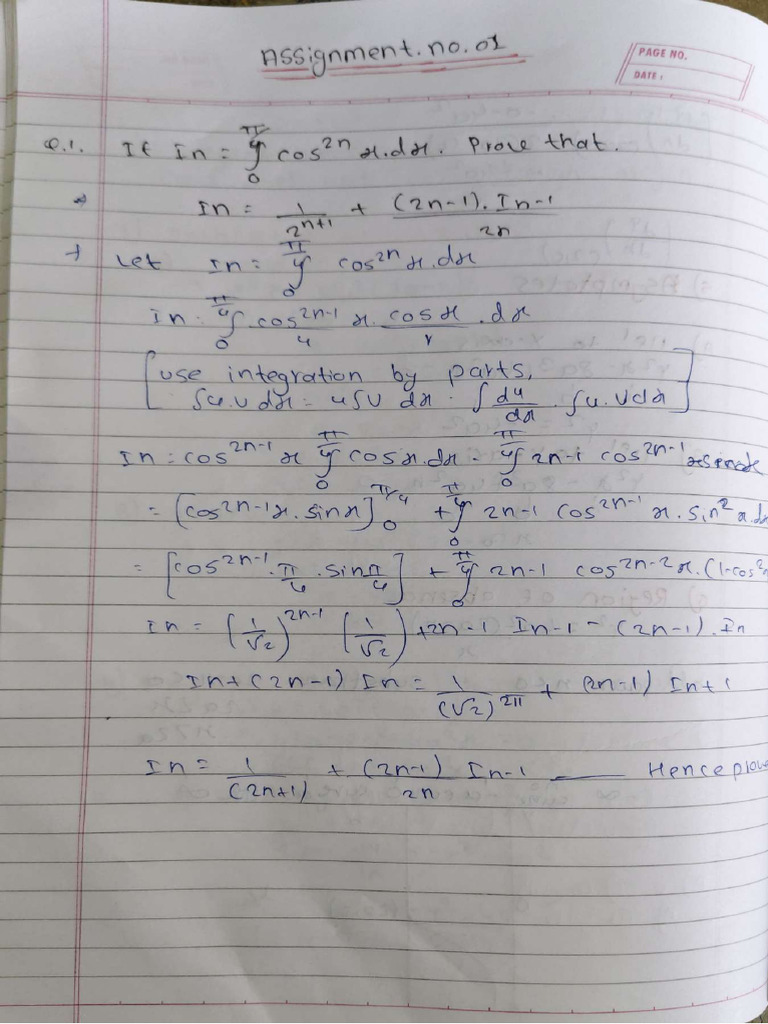 Assignment. no. 01
PAGE NO.
DATE :
Q.1. If In = ∫₀^(π/4) cos^(2n) x.dx. Prove that.
In = 1/2^(n+1) + (2n-1). In-1 / 2n
Let In = ∫₀^(π/4) cos^(2n) x.dx
In = ∫₀^(π/4) cos^(2n-1) x. cos x .dx
u v
[use integration by parts,
∫u.v dx = u∫v dx - ∫ du/dx . ∫u. v dx]
In = cos^(2n-1) x ∫₀^(π/4) cos x.dx - ∫₀^(π/4) 2n-1 cos^(2n-1)
= [cos^(2n-1) x. sin x]₀^(π/4) + ∫₀^(π/4) 2n-1 cos^(2n-1) x. sin² x.dx
= [cos^(2n-1). π/4 . sin π/4] + ∫₀^(π/4) 2n-1 cos^(2n-2) x. (1-cos²
In = (1/√2)^(2n-1) (1/√2) + 2n-1 In-1 - (2n-1). In
In + (2n-1) In = 1/(√2)^(2n) + (2n-1) In+1
In = 1/(2n+1) + (2n-1)/2n In-1 —— Hence prove